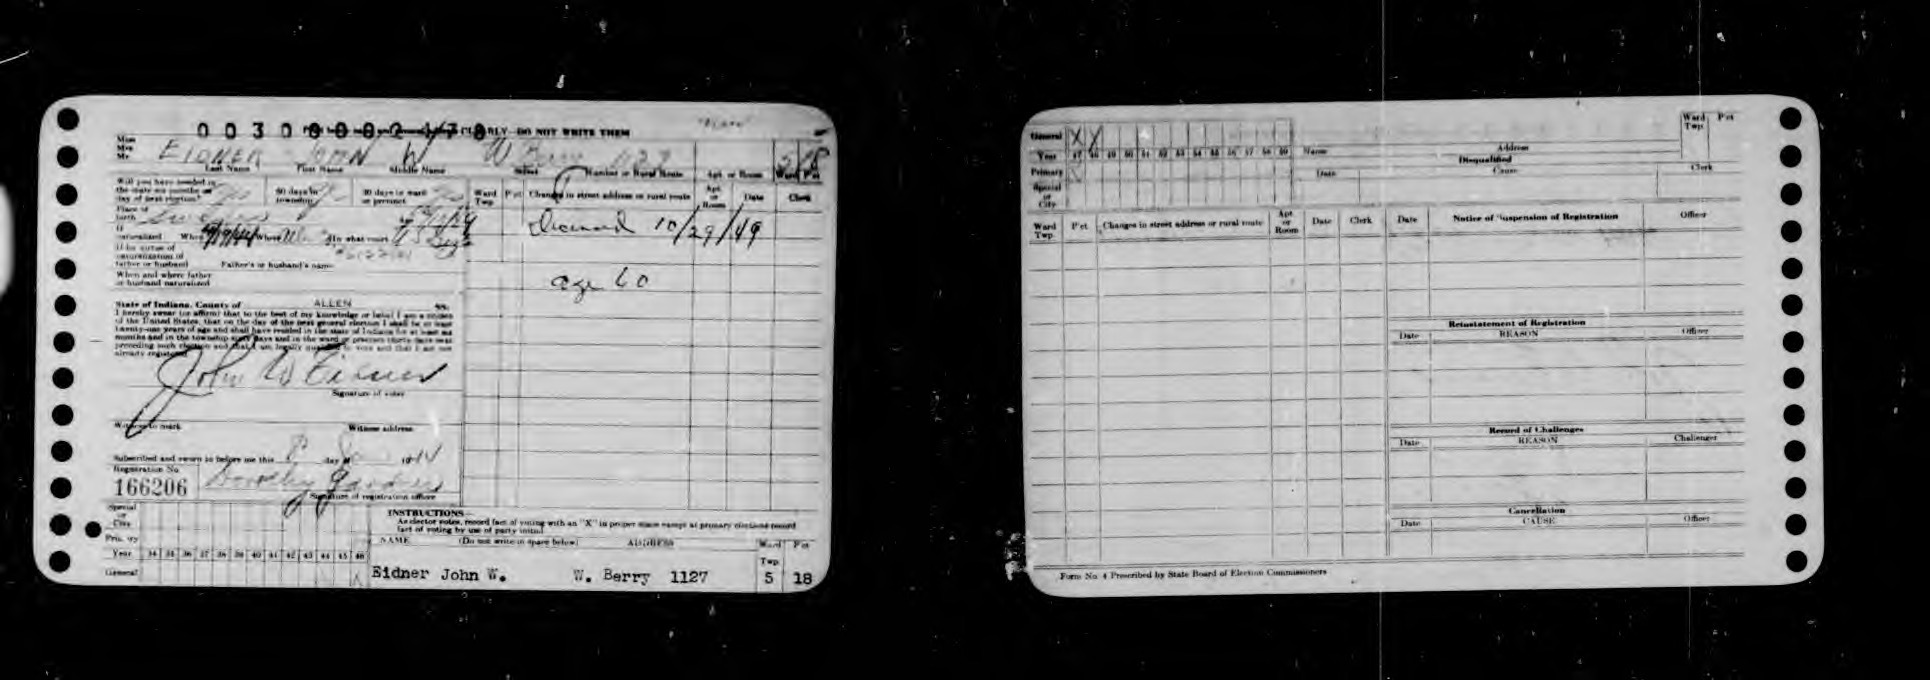 00300002178
CLEARLY—DO NOT WRITE THEM
Miss
Mrs
Mr
EIDNER JOHN W W Berry 1127 5 18
Last Name First Name Middle Name Street Number or Rural Route Apt. or Room Ward Pct
Will you have resided in the state six months on day of next election? Yes 60 days in township? 30 days in ward or precinct
Ward Twp. Pct Changes in street address or rural route Apt or Room Date Clerk
Place of birth
Deceased 10/29/49
If naturalized When Where In what court
If by virtue of naturalization of father or husband Father's or husband's name
When and where father or husband naturalized
age 60
State of Indiana, County of ALLEN ss:
I hereby swear (or affirm) that to the best of my knowledge or belief I am a citizen
of the United States, that on the day of the next general election I shall be at least
twenty-one years of age and shall have resided in the state of Indiana for at least six
months and in the township sixty days and in the ward or precinct thirty days next
preceding such election and that I am legally qualified to vote and that I am not
already registered.
John W Eidner
Signature of voter
Witness to mark Witness address
Subscribed and sworn to before me this 8 day of 19
Registration No.
166206
Dorothy
Signature of registration officer
Special or City
Primary
Year 34 35 36 37 38 39 40 41 42 43 44 45 46
General X
INSTRUCTIONS—
As elector votes, record fact of voting with an "X" in proper space except at primary elections record
fact of voting by use of party initial.
NAME (Do not write in space below) ADDRESS Ward Twp. Pct
Eidner John W. W. Berry 1127 5 18
General X X
Year 47 48 49 50 51 52 53 54 55 56 57 58 59
Primary
Special or City
Name Address Ward Twp. Pct
Disqualified
Date Cause Clerk
Ward Twp. Pct Changes in street address or rural route Apt or Room Date Clerk
Date Notice of Suspension of Registration Officer
Reinstatement of Registration
Date REASON Officer
Record of Challenges
Date REASON Challenger
Cancellation
Date CAUSE Officer
Form No. 4 Prescribed by State Board of Election Commissioners